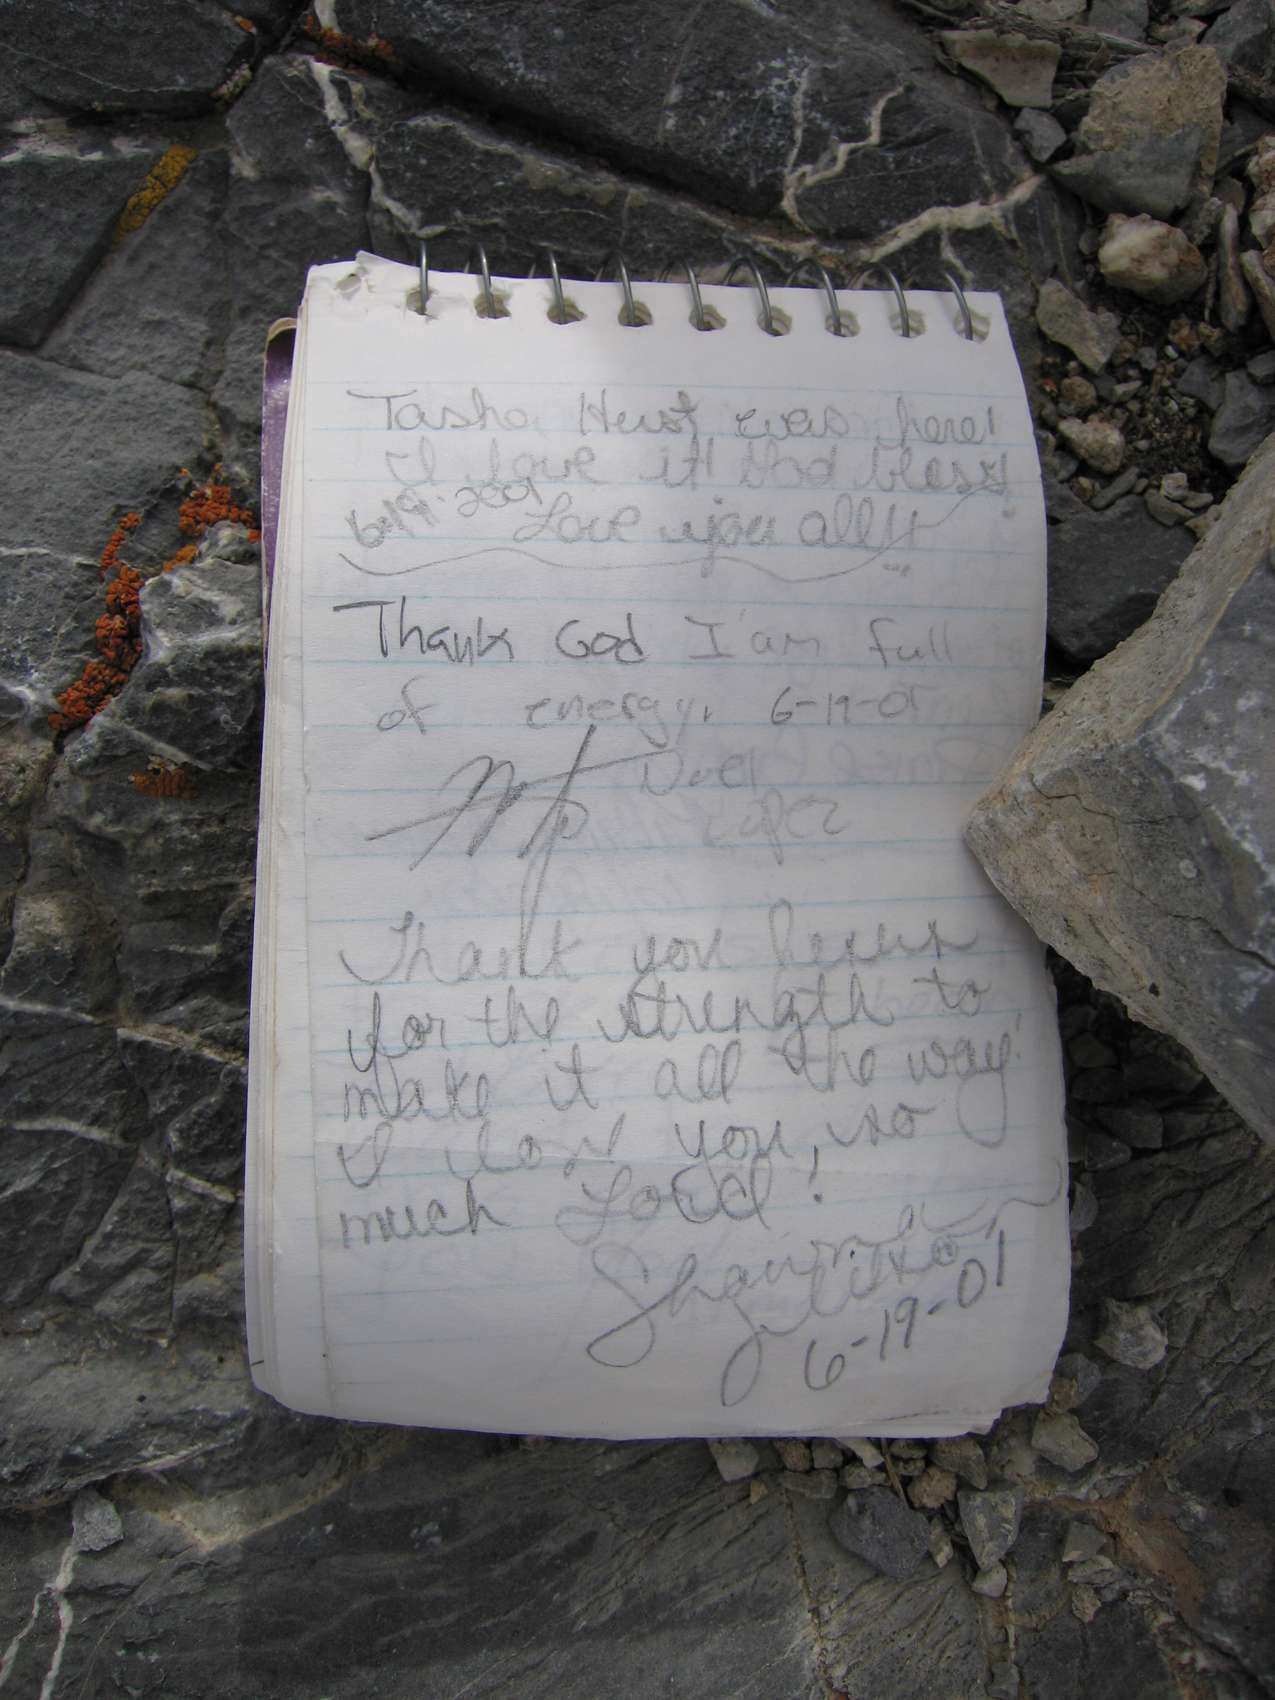 Tasha Hust was here!
I love it! God bless!
6-19-2001 Love you all!!
Thank God I am full
of energy. 6-19-01
Noel
Lopez
Thank you Jesus
for the strength to
make it all the way!
I love you, so
much Lord!
Shauna
6-19-01